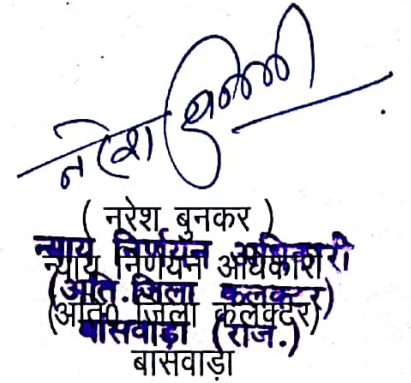 नरेश बुनकर
( नरेश बुनकर )
न्याय निर्णयन अधिकारी
न्याय निर्णयन अधिकारी
(अति.जिला कलक्टर)
(अति० जिला कलेक्टर)
बांसवाड़ा (राज.)
बांसवाड़ा